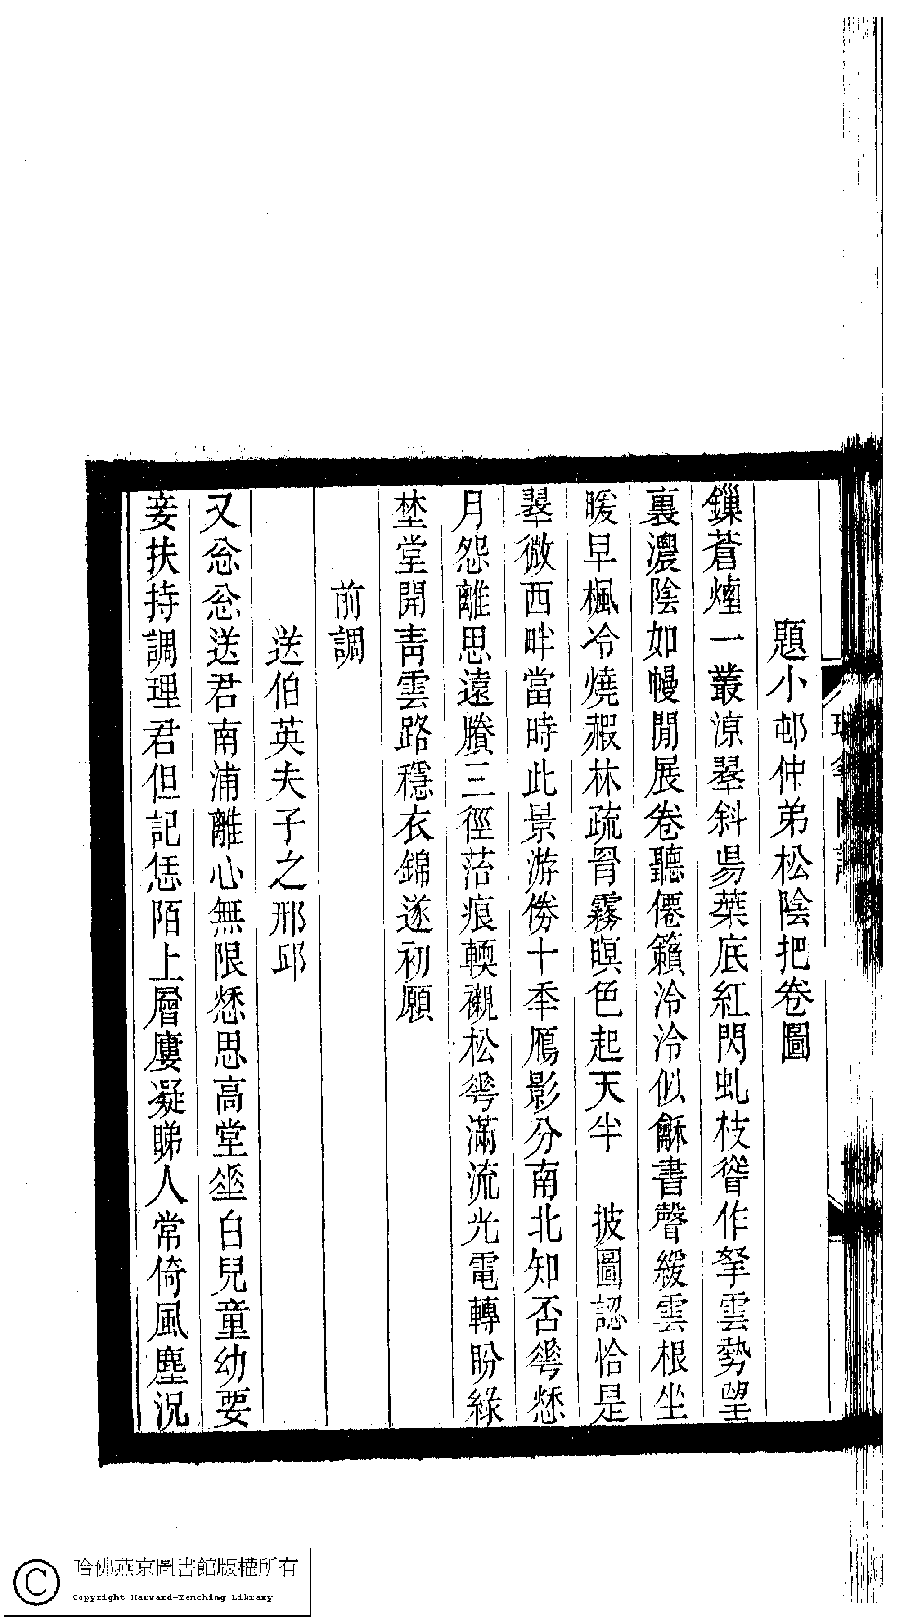 題小邨仲弟松陰把卷圖
鏁蒼煙一叢涼翠斜昜葉底紅閃虬枝聳作拏雲勢望
裏濃陰如幔閒展卷聽僊籟泠泠似龢書聲緩雲根坐
暖早楓冷燒霞林疏罥霧暝色起天半　披圖認恰是
翠微西畔當時此景游倦十年鴈影分南北知否琴愁
月怨離思遠賸三徑萿痕輭襯松琴滿流光電轉盼綠
埜堂開靑雲路穩衣錦遂初願
前調
送伯英夫子之邢邱
又忩忩送君南浦離心無限愁思高堂𠌶白兒童幼要
妾扶持調理君但記恁陌上層廔凝睇人常倚風塵況
哈佛燕京圖書館版權所有
Copyright Harvard-Yenching Library